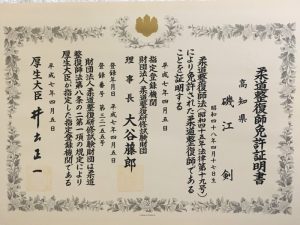 柔道整復師免許証明書
高知県
磯江 剣
昭和四十八年四月十七日生
柔道整復師法(昭和四十五年法律第十九号)
により免許された柔道整復師である
ことを証明する
平成七年四月五日
指定登録機関
財団法人柔道整復研修試験財団
理事長 大谷藤郎
登録年月日 平成七年四月五日
登録番号 第三二二五五号
財団法人柔道整復研修試験財団は柔道
整復師法第八条の二第一項の規定により
厚生大臣が指定した指定登録機関である
平成七年四月五日
厚生大臣 井出正一